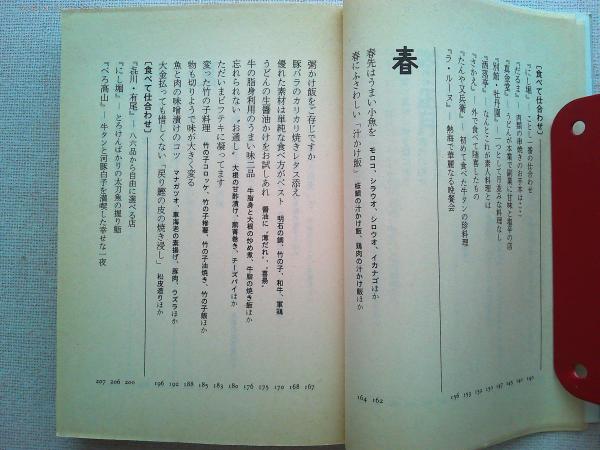 〔食べて仕合わせ〕
『にし堀』
『だるま』
『真金堂』
『別館・牡丹園』― 一つとして月並みな料理なし
『洒落亭』― なんとこれが素人料理とは
『さか入』― 外で食べて随喜したもの
『たんや又兵衛』― 初めて食べた牛タンの珍料理
『ラ・ルーヌ』 熱海で華麗なる晩餐会
156 153 152 150 147 145 141 140
春
春先はうまい小魚を モロコ、シラウオ、シロウオ、イカナゴほか
162
春にふさわしい「汁かけ飯」 桜鯛の汁かけ飯、鶏肉の汁かけ飯ほか
164
粥かけ飯をご存じですか
167
豚バラのカリカリ焼きレタス添え
168
優れた素材は単純な食べ方がベスト 明石の鯛、竹の子、和牛、軍鶏
170
うどんの生醤油かけをお試しあれ 醤油に〝薄だれ〟、〝喜楽〟
175
牛の脂身利用のうまい味三品 牛脂身と大根の炒め煮、牛脂の焼き飯ほか
176
忘れられない〝お通し〟 大根の甘酢漬け、煎胃巻き、チーズパイほか
180
ただいまビフテキに凝ってます
183
変った竹の子料理 竹の子コロッケ、竹の子椿薯、竹の子油焼き、竹の子飯ほか
185
物も切りようで味が大きく変る
188
魚と肉の味噌漬けのコツ マナガツオ、車海老の素揚げ、豚肉、ウズラほか
192
大金払っても惜しくない「戻り鰹の皮の焼き浸し」 松皮造りほか
196
〔食べて仕合わせ〕
『㐂川・有尾』― 八六品から自由に選べる店
200
『にし堀』― とろけんばかりの太刀魚の握り鮨
206
『べろ高山』― 牛タンと河豚白子を満喫した幸せな一夜
207